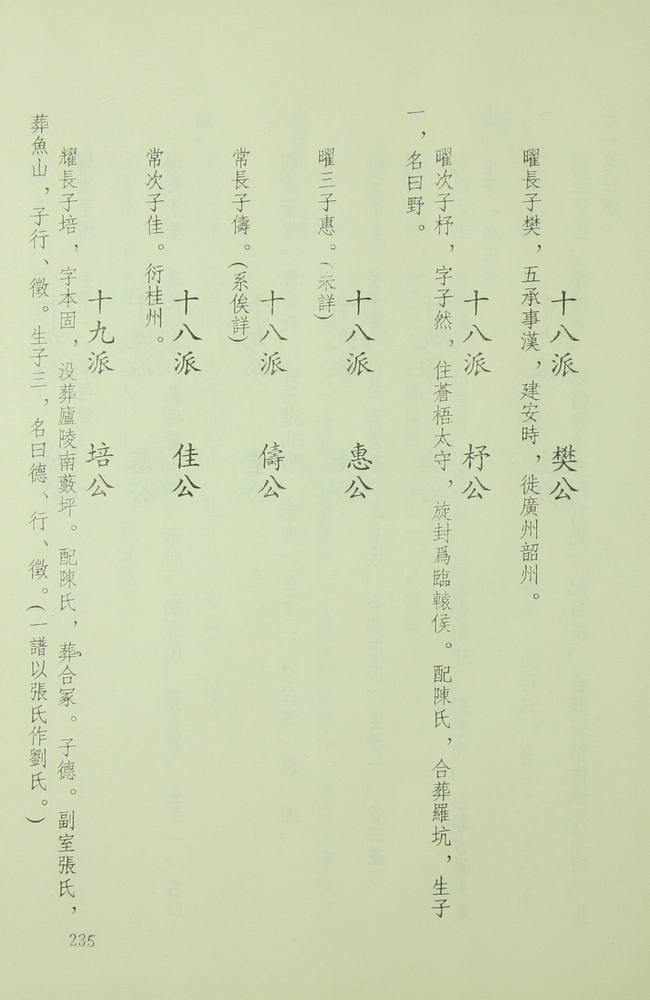 十八派　樊公
曜長子樊，五承事漢，建安時，徙廣州韶州。
十八派　杍公
曜次子杍，字子然，住蒼梧太守，旋封爲臨轅侯。配陳氏，合葬羅坑，生子
一，名曰野。
十八派　惠公
曜三子惠。（未詳）
十八派　儔公
常長子儔。（系俟詳）
十八派　佳公
常次子佳。衍桂州。
十九派　培公
耀長子培，字本固，没葬廬陵南藪坪。配陳氏，葬合冢。子德。副室張氏，
葬魚山，子行、徵。生子三，名曰德、行、徵。（一譜以張氏作劉氏。）
235